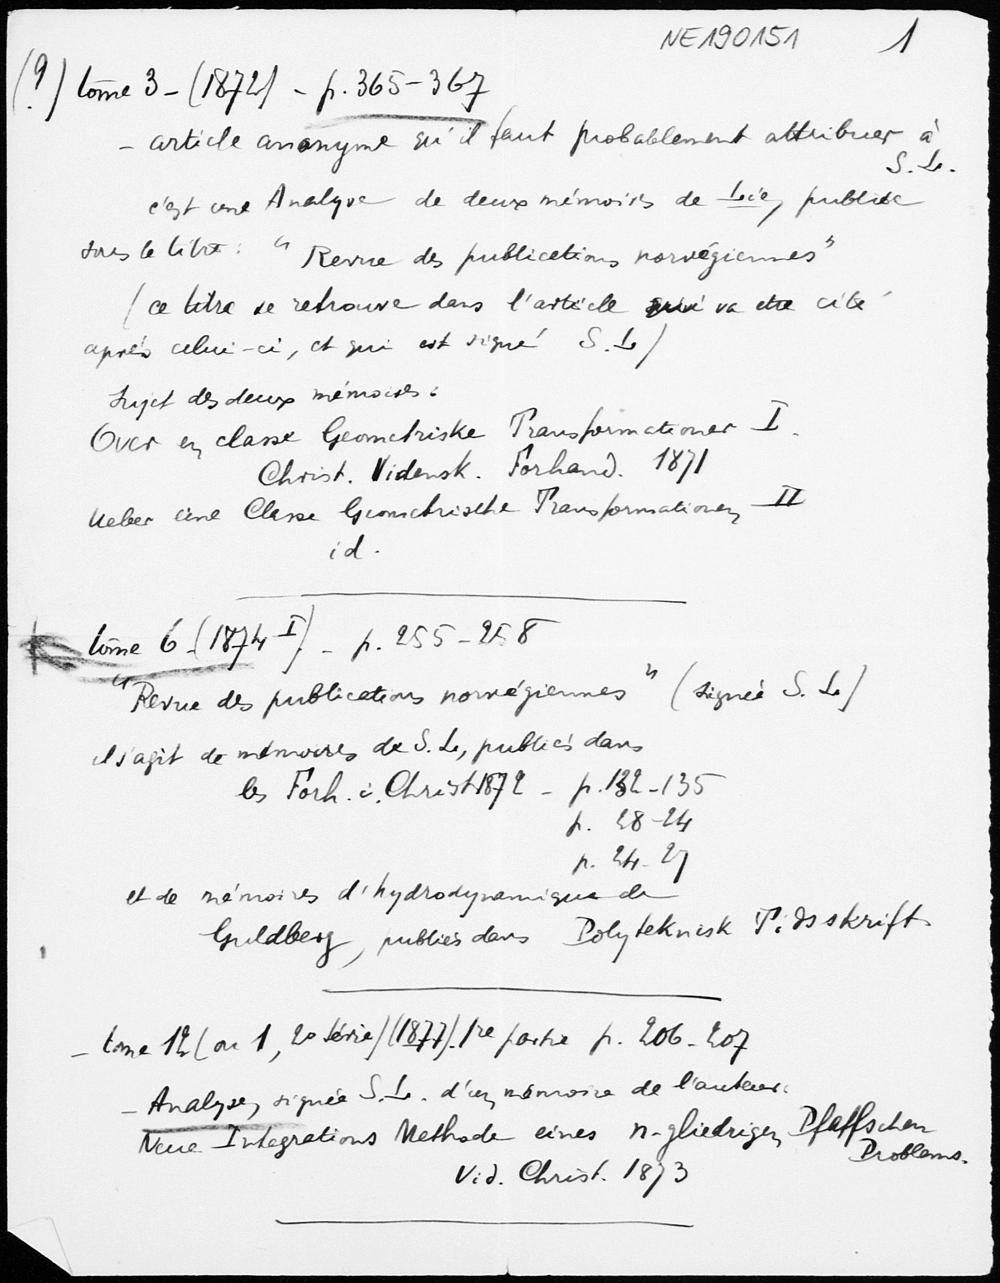 NE190151 1
(?) tome 3 - (1872) - p. 365-367
- article anonyme qu'il faut probablement attribuer à
S. L.
c'est une Analyse de deux mémoires de Lie, publiée
sous le titre : "Revue des publications norvégiennes"
(ce titre se retrouve dans l'article qui va être cité
après celui-ci, et qui est signé S. L)
Sujet des deux mémoires :
Over en classe Geometriske Transformationer I.
Christ. Vidensk. Forhand. 1871
Ueber eine Classe Geometrische Transformationen II
id.
tome 6 - (1874 I) - p. 255-258
"Revue des publications norvégiennes" (signée S. L)
il s'agit de mémoires de S. L, publiés dans
les Forh. i. Christ 1872 - p. 132-135
p. 28-24
p. 24-27
et de mémoires d'hydrodynamique de
Guldberg, publiés dans Polyteknisk Tidsskrift
- tome 12 (ou 1, 2e série) (1877). 1re partie p. 206-207
- Analyse, signée S. L. d'un mémoire de l'auteur :
Neue Integrations Methode eines n-gliedrigen Pfaffschen
Problems.
Vid. Christ. 1873